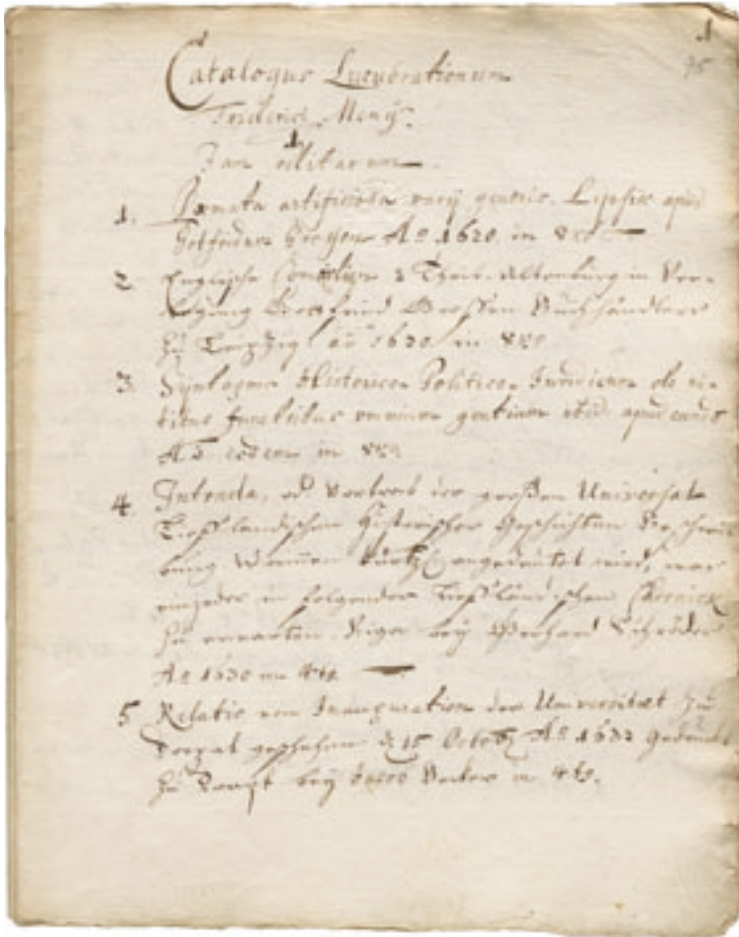 1
75
Catalogus Lucubrationum
Friderici Menij.
Jam editarum
1. Poemata artificiosa varij generis. Lipsiæ apud
Ao 1620. in 8vo
2 Englische Comœdien 2 Theil. Altenburg in Ver-
legung Gottfried Großen Buchhändlers
zu Leipzigk ao 1620 in 8vo
3. Syntagma Historicon Politicon Juridicon de ri-
tibus omnium gentium ibid. apud eund.
Ao eodem in 8vo.
4 Intrada, od Vortrab der großen Universal
Liefländischen Historischer Geschichten Beschrei-
bung Worinnen kürtzl angedeutet wird, was
einjeder in folgender Liefländischen Chronick
zu erwarten. Riga bey Gerhard Schröder
Ao 1630 in 4to.
5 Relatio von Inauguration der Universitæt zu
Dorpat geschehen d 15 Octob Ao 1632 Gedruckt
zu Dorpt bey Jacob Becker in 4to.